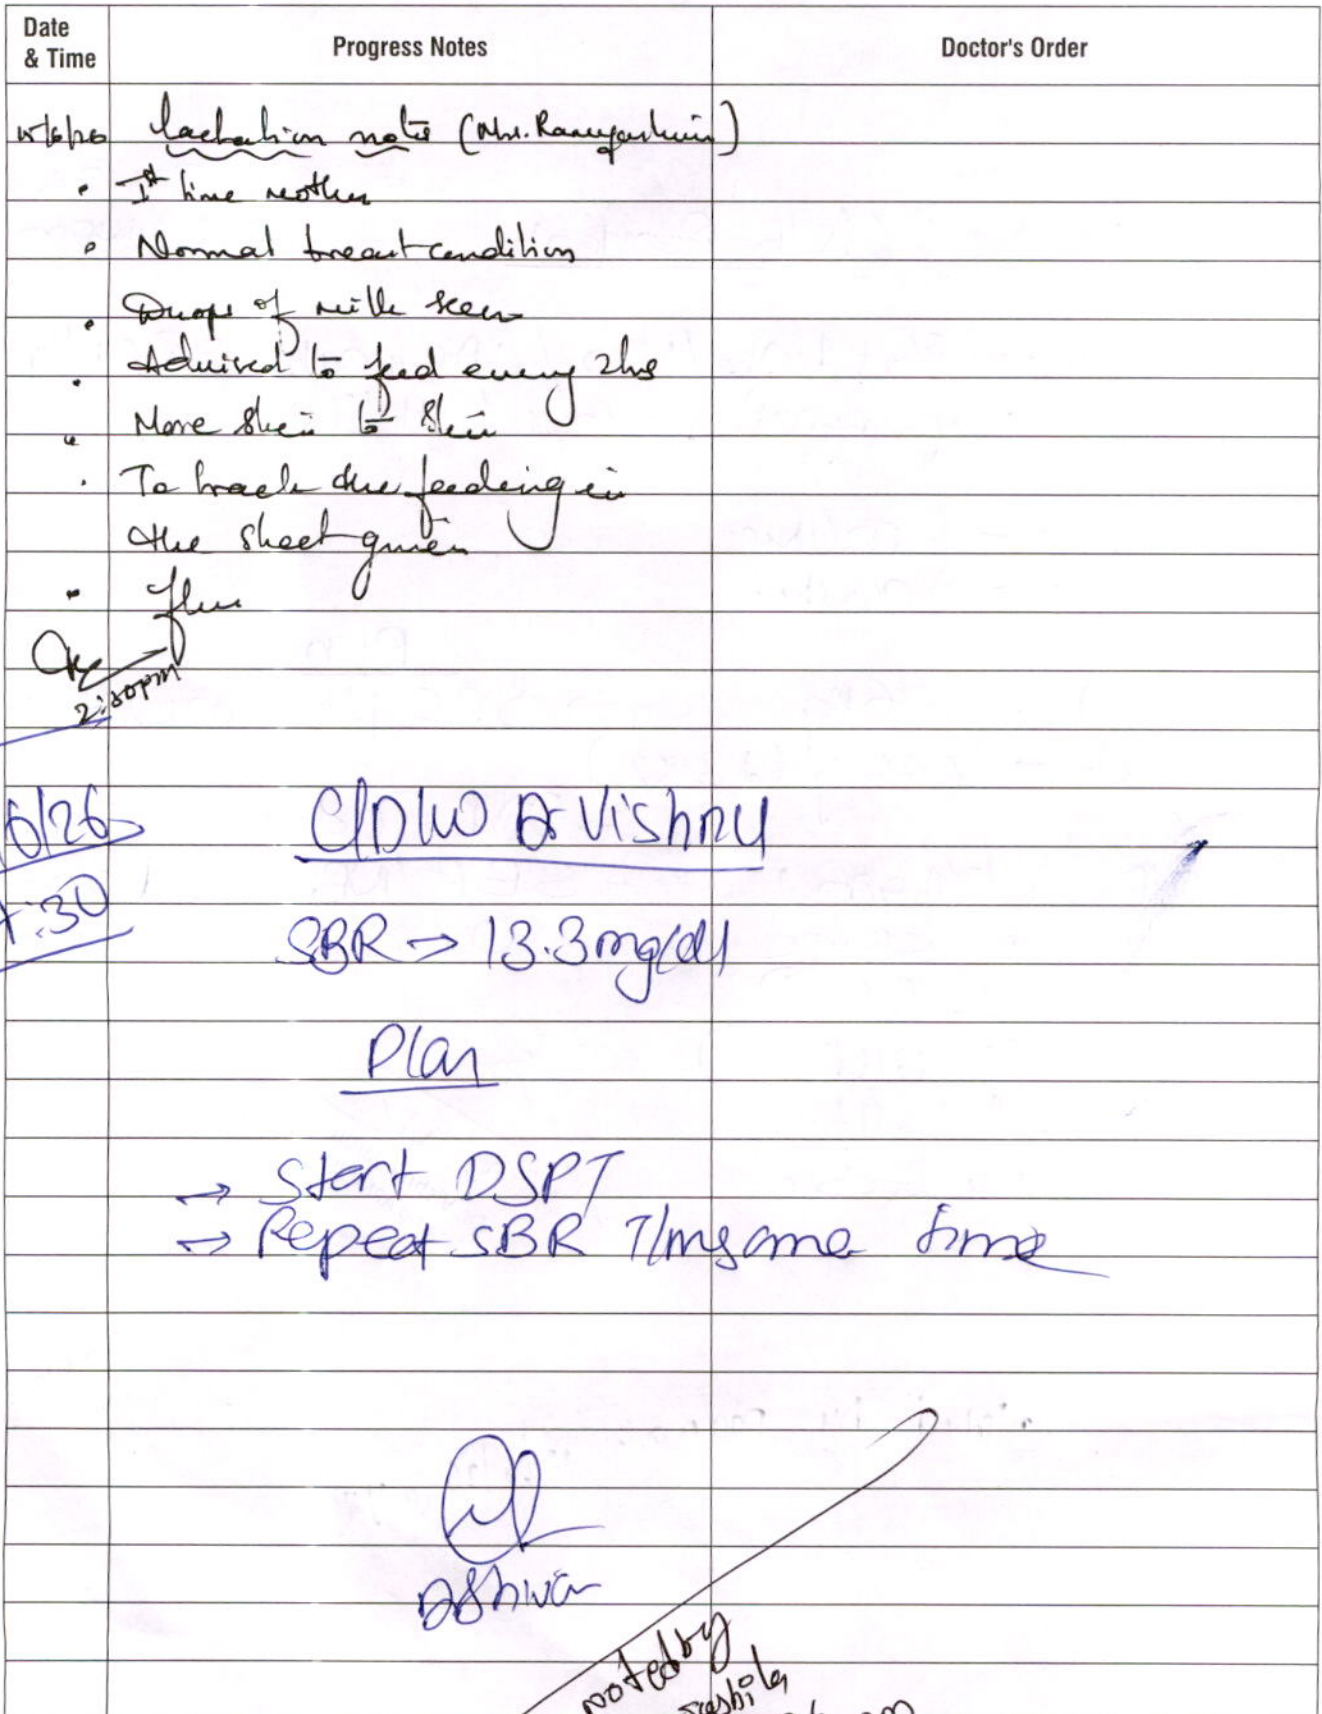 Date & Time Progress Notes Doctor's Order
15/6/26 lactation note (Mrs.
• Ist time mother
• Normal breast condition
• Drops of milk seen
• Advised to feed every 2hrs
• More skin to skin
• To track the feeding in
the sheet given
•
2:30pm
6/26 C/D/W Dr Vishnu
:30
SBR → 13.3mg/dl
Plan
→ Start DSPT
→ Repeat SBR T/m same time
noted by